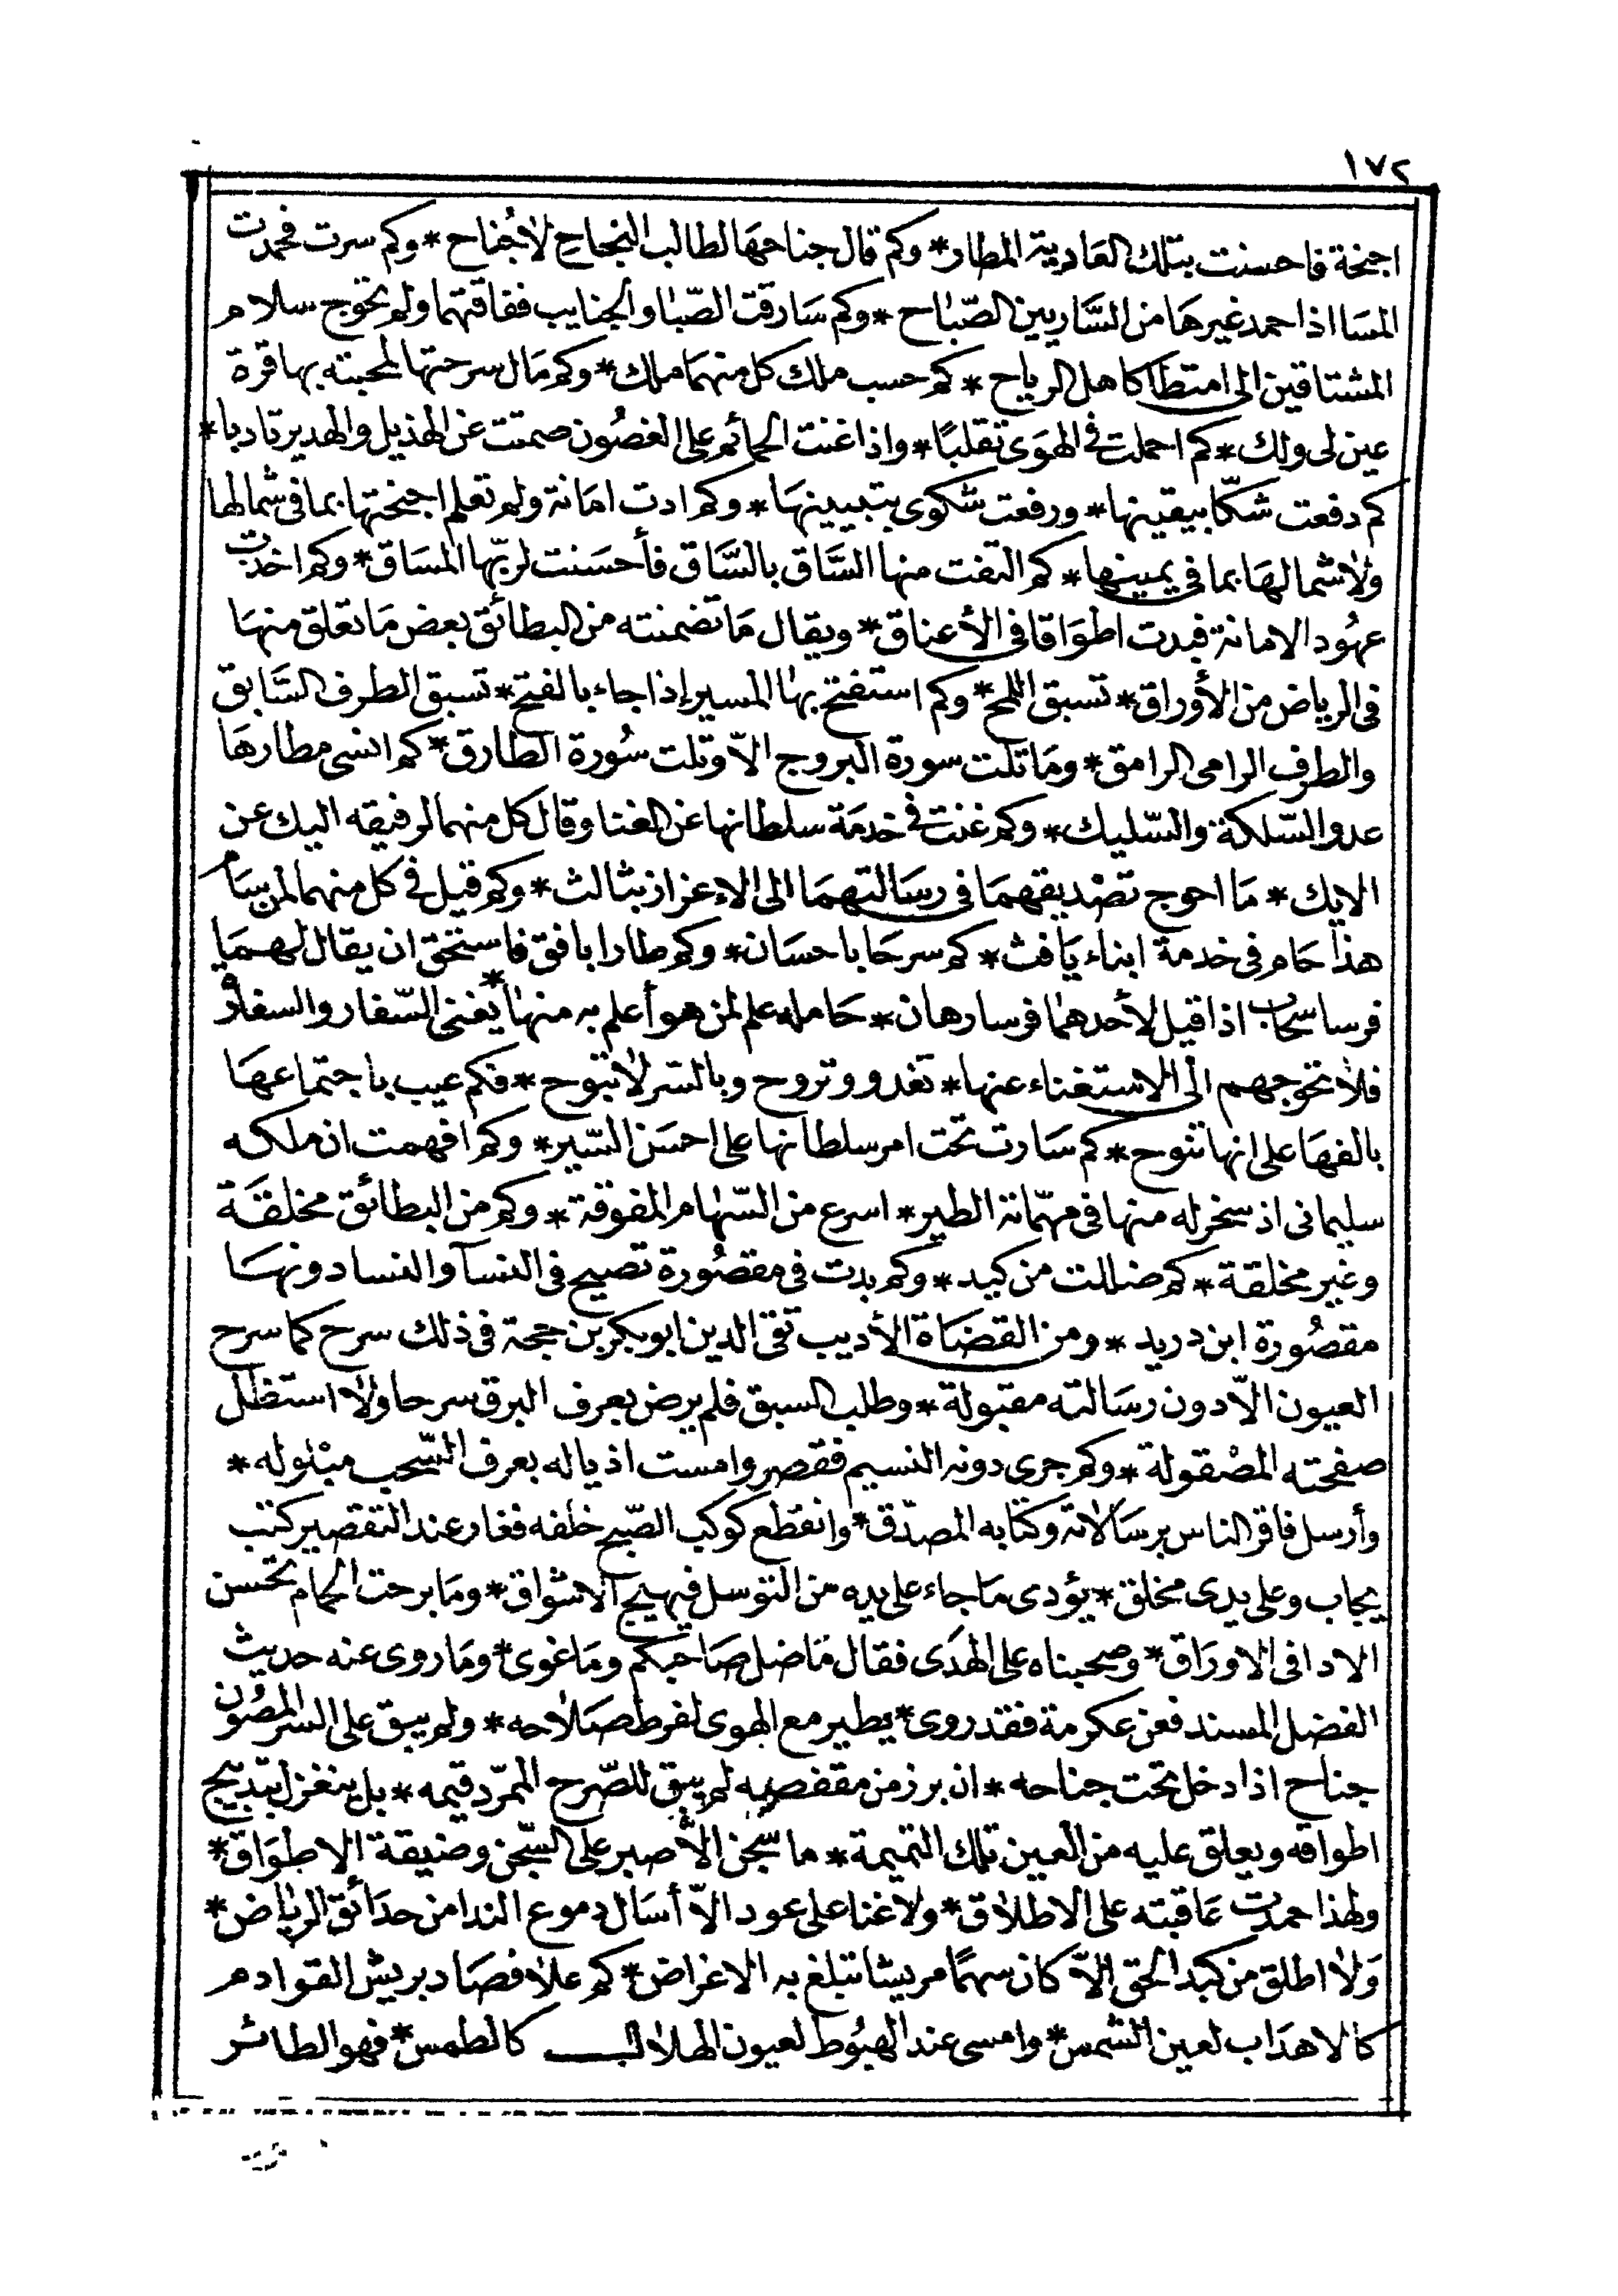 ١٧٢
اجنحة فاحسنت بتلك العادية المطار * وكم قال جناحها لطالب النجاح لا جُناح * وكم سرت فحمدت
المسا اذا حمد غيرها من السَّاريين الصّباح * وكم سَارقت الصّبا والجنايب ففاقتهما ولم تحوج سلام
المشتاقين الى امتطا كاهل الرياح * كم حسب ملك كل منهما ملك * وكم مَال سرحتها لمحبته بها قرة
عين لى ولك * كم اجملت فى الهوَى تقلبًا * واذا غنت الحمائم على الغصُون صمتت عن الهذيل والهدير تادبا *
كم دفعت شكّا بيقينها * ورفعت شكوى بتبيينهَا * وكم ادت امانة ولم تعلم اجنحتها بما فى شمالها
ولا شمالهَا بما فى يمينها * كم التفت منها السَّاق بالسَّاق فأحسَنت لربّها المسَاق * وكم اخذت
عهُود الامانة فبدت اطوَاقا فى الأعناق * ويقال مَا تضمنته من البطائق بعض مَا تعلق منهَا
فى الرياض من الأوراق * تسبق اللمح * وكم استفتح بها المسير إذا جاء بالفتح * تسبق الطرف السَّابق
والطرف الرامى الرامق * ومَا تلت سورة البروج الاّ وتلت سُورة الطارق * كم انسى مطارهَا
عدو السّلكة والسّليك * وكم غنت فى خدمَة سلطانها عن الغنا وقال كل منهما لرفيقه اليك عن
الايك * مَا احوج تصْديقهمَا فى رسَالتهمَا الى الاعزاز بثالث * وكم قيل فى كل منهما لمن سَام
هذا حَام فى خدمة ابناء يَافث * كم سرحَا باحسَان * وكم طارا بافق فاستحق ان يقال لهمَا
فرسا سحاب اذا قيل لأحدهما فرسا رهان * حَاملة علم لمن هو أعلم به منها * يغنى السّفار والسفاد
فلا تحوجهم الى الاستغناء عنها * تغدو وتروح وبالسّر لا تبوح * فكم عيب باجتماعهَا
بالفهَا على انها تنوح * كم سَارت تحت امر سلطانها على احسَن السّير * وكم افهمت ان ملكه
سليمانى اذ سخر له منها فى مهمّانة الطير * اسرع من السّهام المفوقة * وكم من البطائق مخلقَة
وغير مخلقة * كم ضللت من كيد * وكم بدت فى مقصُورة تصيح فى النسآ والنسا دونهَا
مقصُورة ابن دريد * ومن القضَاة الأديب تقى الدين ابو بكر بن حجة فى ذلك سرح كما سرح
العيون الاّ دون رسَالته مقبولة * وطلب السبق فلم يرض بعرف البرق سرحا ولا استظل
صفحته المصْقولة * وكم جرى دونه النسيم فقصر وامست اذياله بعرف السّحب مبْلوله *
وأرسل فاقر الناس برسَالاته وكتابه المصدّق * وانقطع كوكب الصّبح خلفه فغار عند التقصير كتب
يجاب وعلى يدى مخلق * يؤدى مَا جاء على يده من التوسل فيهيج الاشواق * ومَا برحت الحمام تحسن
الادا فى الاورَاق * وصحبناه على الهدَى فقال مَا ضل صَاحبكم ومَا غوى * ومَا روى عنه حديث
الفضل المسند فعن عكرمة فقد روى * يطير مع الهوى لفرط صَلاحه * ولم يبق على السرّ المصُون
جناح اذا دخل تحت جناحه * ان برز من مقفصه لم يبق للصّرح الممرّد قيمه * بل ينغزل بتدبيج
اطواقه ويعلق عليه من العين تلك التميمة * ما سجن الاّ صبر على السّجن وضيقة الاطوَاق *
ولهذا حمدت عَاقبته على الاطلاق * ولا غنا على عود الاّ أسَال دموع الندا من حدَائق الرياض *
وَلا اطلق من كبد الحق إلاّ كان سهمًا مريشا تبلغ به الاغراض * كم علا فصَاد بريش القوادم
كالاهدَاب لعين الشمس * وامسى عند الهبُوط لعيون الهلال كالطمس * فهو الطائر